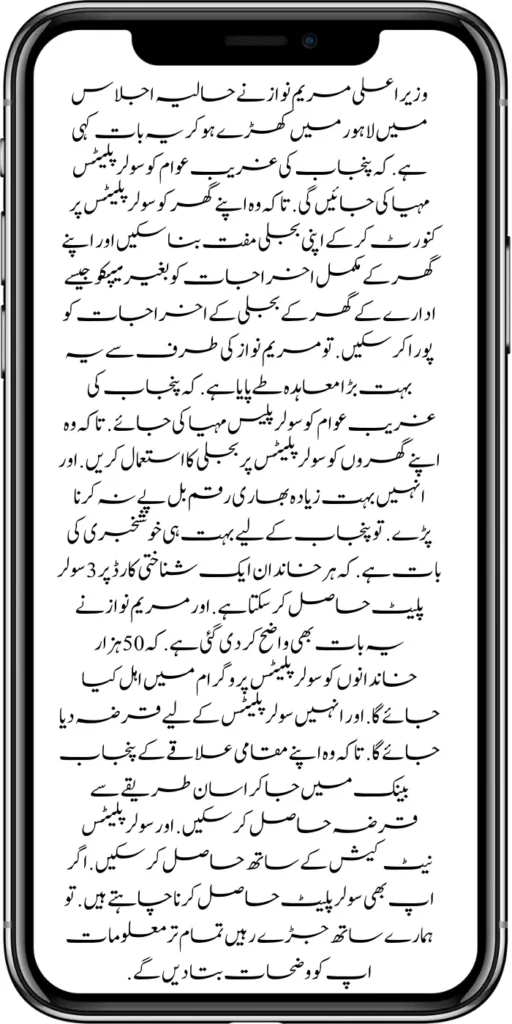 وزیراعلی مریم نواز نے حالیہ اجلاس
میں لاہور میں کھڑے ہو کر یہ بات کہی
ہے. کہ پنجاب کی غریب عوام کو سولر پلیٹس
مہیا کی جائیں گی. تاکہ وہ اپنے گھر کو سولر پلیٹس پر
کنورٹ کر کے اپنی بجلی مفت بنا سکیں اور اپنے
گھر کے مکمل اخراجات کو بغیر میپکو جیسے
ادارے کے گھر کے بجلی کے اخراجات کو
پورا کر سکیں. تو مریم نواز کی طرف سے یہ
بہت بڑا معاہدہ طے پایا ہے. کہ پنجاب کی
غریب عوام کو سولر پلیس مہیا کی جائے. تاکہ وہ
اپنے گھروں کو سولر پلیٹس پر بجلی کا استعمال کریں. اور
انہیں بہت زیادہ بھاری رقم بل پے نہ کرنا
پڑے. تو پنجاب کے لیے بہت ہی خوشخبری کی
بات ہے. کہ ہر خاندان ایک شناختی کارڈ پر 3 سولر
پلیٹ حاصل کر سکتا ہے. اور مریم نواز نے
یہ بات بھی واضح کر دی گئی ہے. کہ 50 ہزار
خاندانوں کو سولر پلیٹس پروگرام میں اہل کیا
جائے گا. اور انہیں سولر پلیٹس کے لیے قرضہ دیا
جائے گا. تاکہ وہ اپنے مقامی علاقے کے پنجاب
بینک میں جا کر اسان طریقے سے
قرضہ حاصل کر سکیں. اور سولر پلیٹس
نیٹ کیش کے ساتھ حاصل کر سکیں. اگر
اپ بھی سولر پلیٹ حاصل کرنا چاہتے ہیں. تو
ہمارے ساتھ جڑے رہیں تمام تر معلومات
اپ کو وضحات بتا دیں گے.